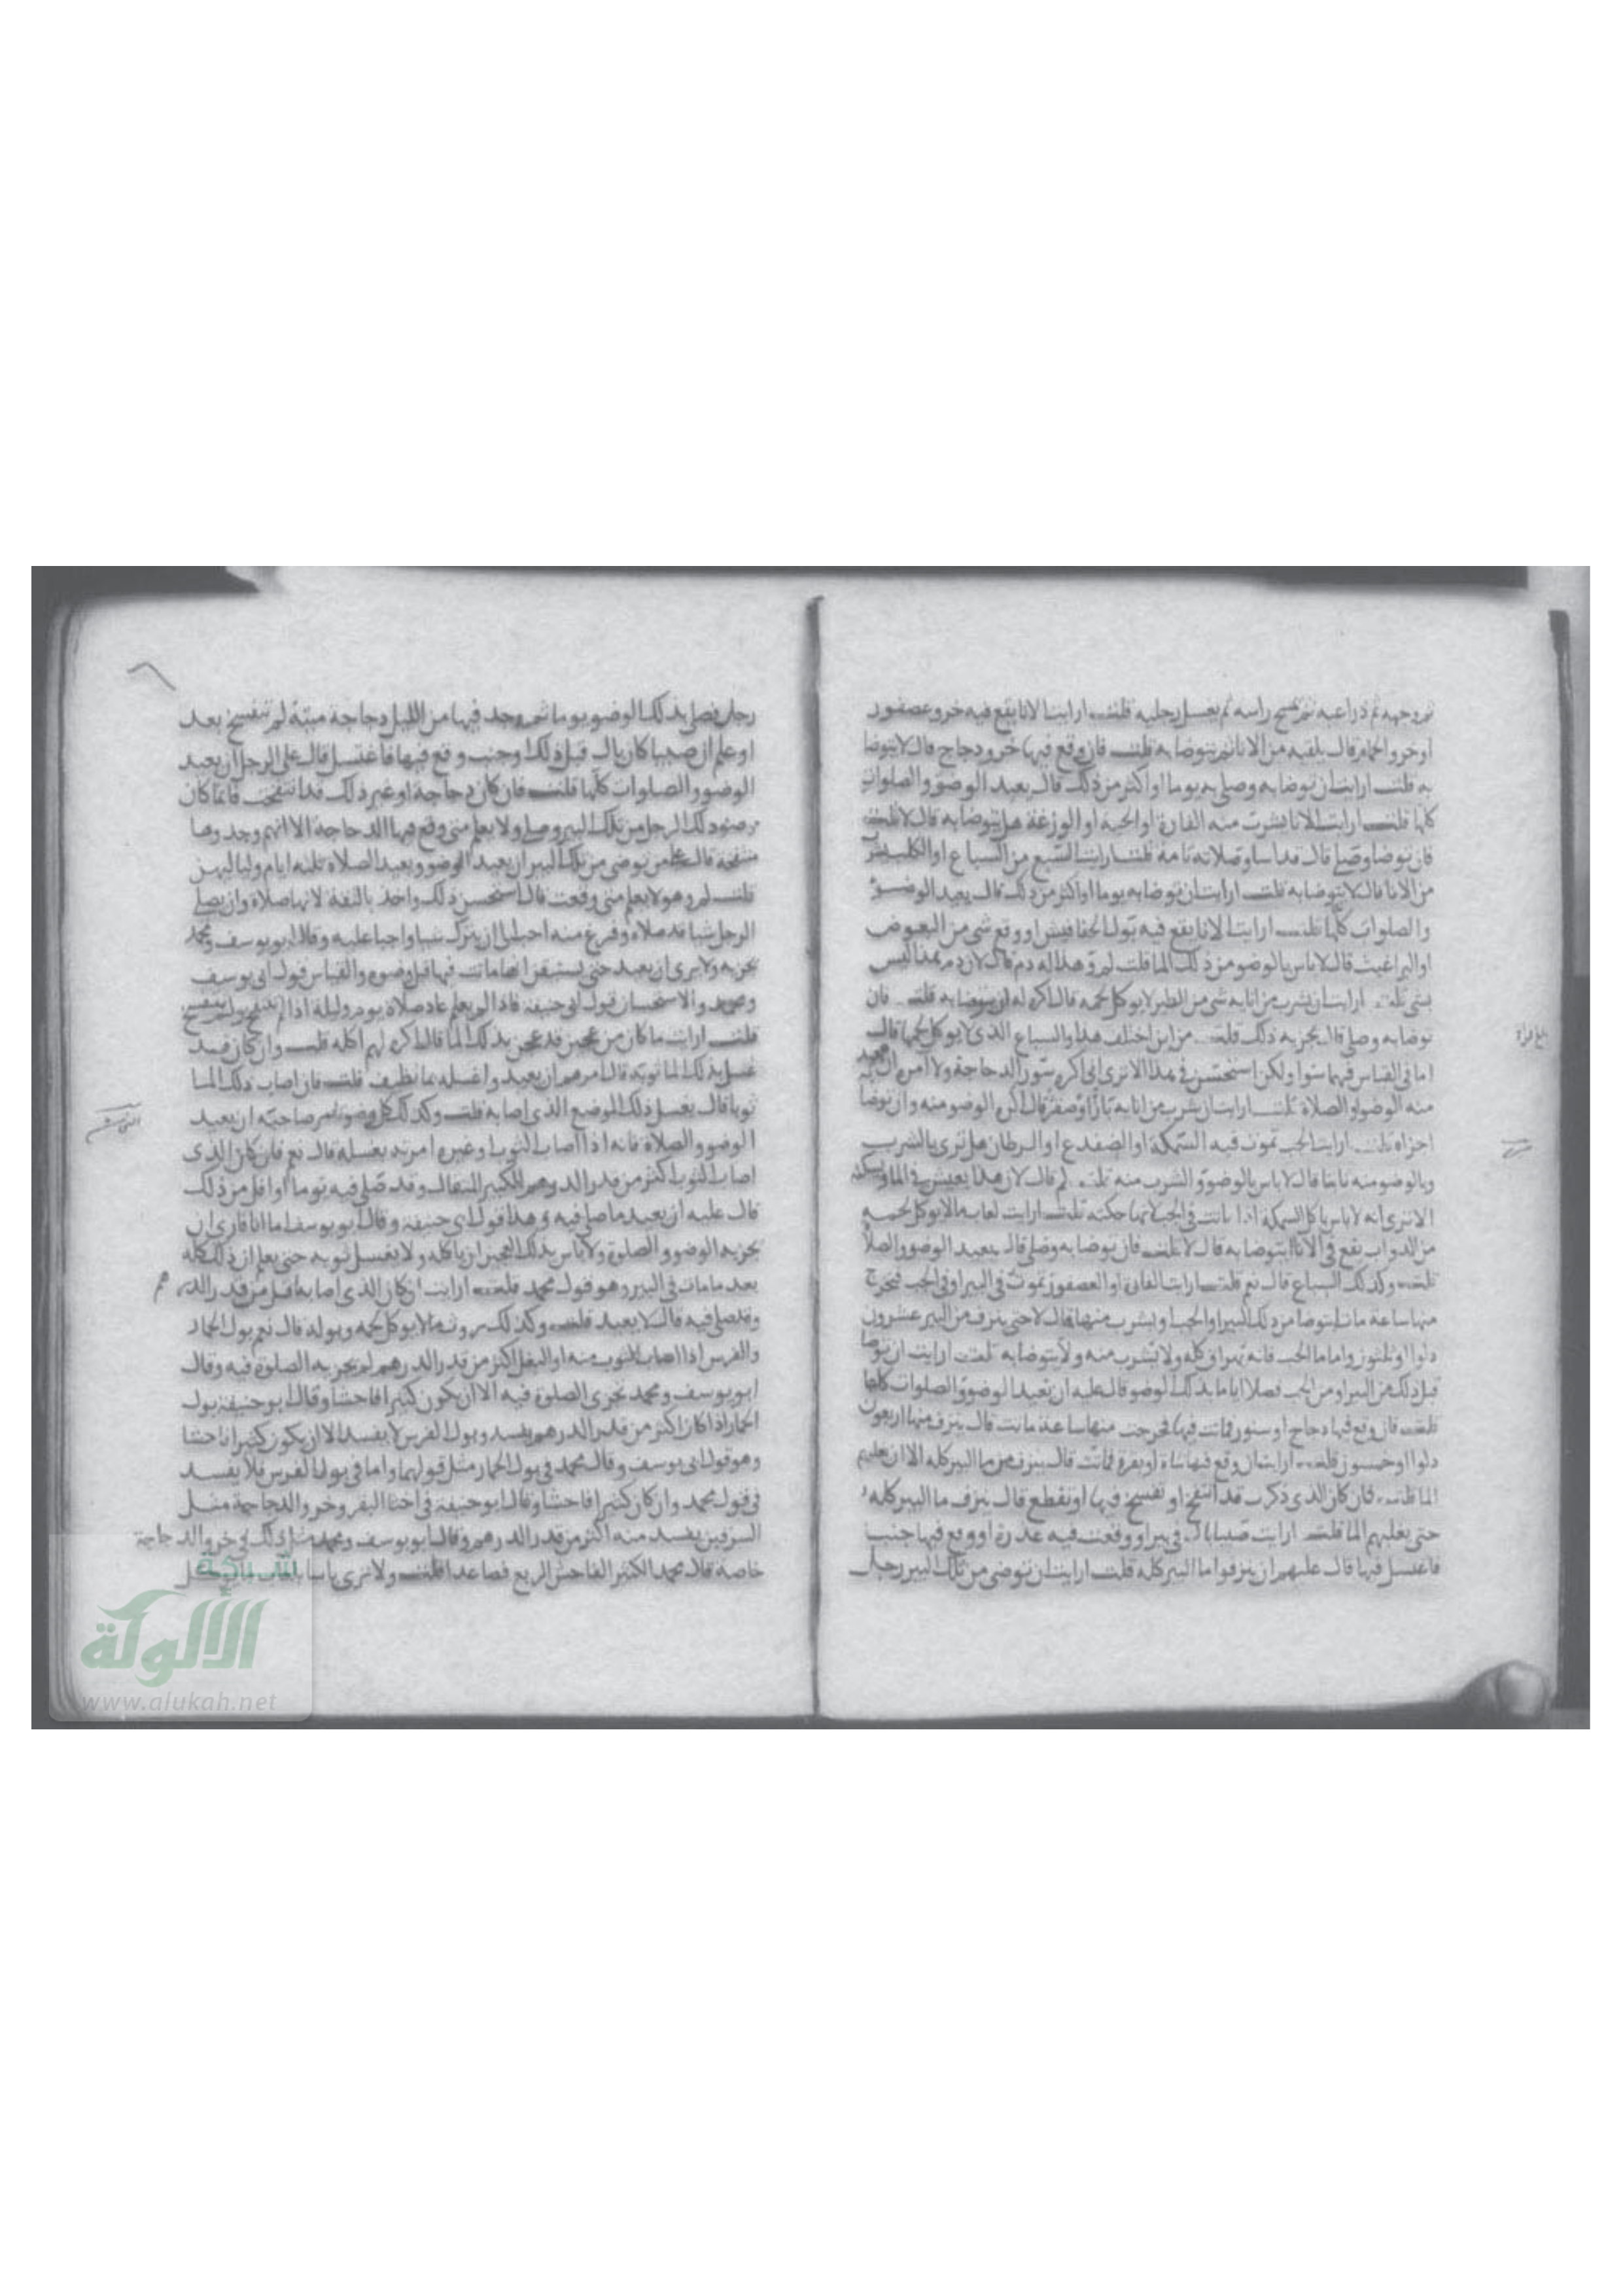 ثم وجهه ثم ذراعيه ثم يمسح راسه ثم يغسل رجليه قلت ارايت الانا يقع فيه خرو عصفور
او خرو الحمام قال يلقيه من الانا ثم يتوضا به قلت فان وقع فيها خرو دجاج قال لا يتوضا
به قلت ارايت ان توضا به وصلى به يوما او اكثر من ذلك قال يعيد الوضوو والصلوات
كلها قلت ارايت الانا يشرب منه الفارة او الحية او الوزغة هل يتوضا به قال لا قلت
فان توضا وصلى قال قد اسا وصلاته تامة قلت ارايت السبع من السباع او الكلب يشرب
من الانا قال لا يتوضا به قلت ارايت ان توضا به يوما او اكثر من ذلك قال يعيد الوضوء
والصلوات كلها قلت ارايت الانا يقع فيه بول الخفافيش او وقع شي من البعوض
او البراغيث قال لا باس بالوضو من ذلك الما قلت لم وهذا له دم قال لان دم هذا ليس
بشي قلت ارايت ان شرب من انا به شي من الطير لا يوكل لحمه قال اكره له ان يتوضا به قلت فان
توضا به وصلى قال يجزيه ذلك قلت من اين اختلف هذا والسباع الذي لا يوكل لحمها قال
اما في القياس فهما سوا ولكن استحسن في هذا الا ترى اني اكره سور الدجاجة ولا امر ان يعيد
منه الوضو او الصلاة قلت ارايت ان شرب من انا به باز او صقر قال اكره الوضو منه وان توضا
اجزاه قلت ارايت الحب تموت فيه السمكة او الضفدع او السرطان هل ترى بالشرب
وبالوضو منه باسا قال لا باس بالوضو والشرب منه قلت لم قال لان هذا يعيش في الما ويسكنه
الا ترى انه لا باس باكل السمكة اذا ماتت في الحب قلت ارايت لعاب مالا يوكل لحمه
من الدواب يقع في الانا ايتوضا به قال لا قلت فان توضا به وصلى قال يعيد الوضو والصلاة
قلت وكذلك السباع قال نعم قلت ارايت الفارة او العصفور تموت في البير او في الحب فتخرج
منها ساعة ماتت ايتوضا من ذلك البير او الحب او يشرب منها قال لا حتى ينزف من البير عشرون
دلوا او ثلثون واما ما الحب فانه يهراق كله ولا يشرب منه ولا يتوضا به قلت ارايت ان توضا
قبل ذلك من البير او من الحب فصلا اياما بذلك الوضو قال عليه ان يعيد الوضوو والصلوات كلها
قلت فان وقع فيها دجاج او سنور فماتت فيها فخرجت منها ساعة ماتت قال ينزف منها اربعون
دلوا او خمسون قلت ارايت ان وقع فيها شاة او بقرة فماتت قال ينزف من ما البير كله الا ان يغلبهم
الما قلت فان كان الذي ذكرت قد انتفخ او تفسخ فيها او تقطع قال ينزف ما البير كله
حتى يغلبهم الما قلت ارايت صبيا بال في بير او وقعت فيه عذرة او وقع فيها جنب
فاغتسل فيها قال عليهم ان ينزفوا ما البير كله قلت ارايت ان توضى من تلك البير رجل
بلغ قراة
رجل فصلى بذلك الوضو يوما ثم وجد فيها من الليل دجاجة ميتة لم تنفسخ بعد
او علم ان صبيا كان بال قبل ذلك او جنب وقع فيها فاغتسل قال على الرجل ان يعيد
الوضوو والصلوات كلها قلت فان كان دجاجة او غير ذلك قد انتفخت
الرجل من تلك البير وصلى ولا يعلم متى وقع فيها الدجاجة الا انهم وجدوها
منتفخة قال على من توضى من تلك البير ان يعيد الوضوو ويعيد الصلاة ثلثه ايام ولياليهن
قلت لم وهو لا يعلم متى وقعت قال استحسن ذلك واخذ بالثقة لانها صلاة وان يصلي
الرجل شيا قد صلاه وفرغ منه احب الي ان يترك شيا واجبا عليه وقال ابو يوسف ومحمد
يجزيه ولا يرى ان يعيد حتى يستيقن انها ماتت فيها قبل وضوه والقياس قول ابي يوسف
ومحمد والاستحسان قول ابي حنيفة فاذا لم يعلم عاد صلاة يوم وليلة اذا لم ينتفخ ولم يتفسخ
قلت ارايت ما كان من عجين قد عجن بذلك الما قال اكره لهم اكله قلت وان كان قد
غسل بذلك الما ثوبه قال امرهم ان يعيد واغسله بما نظيف قلت فان اصاب ذلك الما
ثوبا قال يغسل ذلك الموضع الذي اصابه قلت وكذلك كل وضو امر صاحبه ان يعيد
الوضوو والصلاة فانه اذا اصاب الثوب او غيره امرته بغسله قال نعم فان كان الذي
اصاب الثوب اكثر من قدر الدرهم الكبير المثقال وقد صلى فيه يوما او اقل من ذلك
قال عليه ان يعيد ما صلى فيه وهذا قول ابي حنيفة وقال ابو يوسف اما انا فارى ان
يجزيه الوضوو والصلوة ولا باس بذلك العجين ان ياكله ولا يغسل ثوبه حتى يعلم ان ذلك كله
بعد ما مات في البير وهو قول محمد قلت ارايت ان كان الذي اصابه اقل من قدر الدرهم
وقد صلى فيه قال لا يعيد قلت وكذلك روث مالا يوكل لحمه وبوله قال نعم بول الحمار
والفرس اذا اصاب الثوب منه او البغل اكثر من قدر الدرهم لم يجزيه الصلوة فيه وقال
ابو يوسف ومحمد تجزى الصلوة فيه الا ان يكون كثيرا فاحشا وقال ابو حنيفة بول
الحمار اذا كان اكثر من قدر الدرهم يفسد وبول الفرس لا يفسد الا ان يكون كثيرا فاحشا
وهو قول ابي يوسف وقال محمد في بول الحمار مثل قولهما واما في بول الفرس فلا يفسد
في قول محمد وان كان كثيرا فاحشا وقال ابو حنيفة في اخثا البقر وخرو الدجاجة مثل
السرقين يفسد منه اكثر من قدر الدرهم وقال ابو يوسف ومحمد مثل ذلك في خرو الدجاجة
خاصة قال محمد الكثير الفاحش الربع فصاعدا قلت ولا ترى باسا
شبكة
الألوكة
www.alukah.net